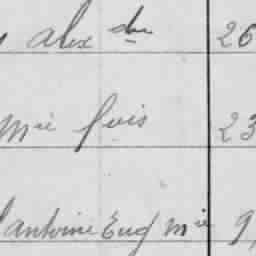 alex dre 26
Mie fois 23
antoine Eug Mie 9